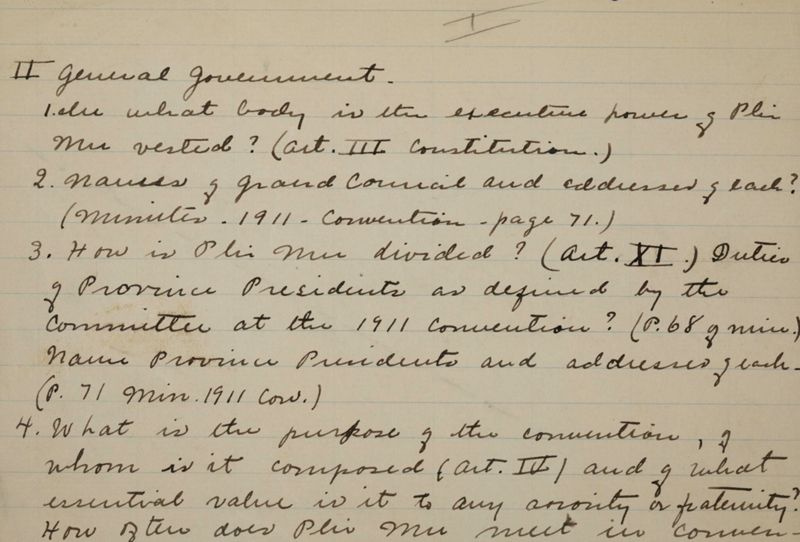 I
II General Government.
1. In what body is the executive power of Phi
Mu vested? (Art. III Constitution.)
2. Names of Grand Council and addresses of each?
(Minutes - 1911 - Convention - page 71.)
3. How is Phi Mu divided? (Art. XI.) Duties
of Province Presidents as defined by the
committee at the 1911 convention? (P. 68 of min.)
Name Province Presidents and addresses of each -
(P. 71 Min. 1911 Con.)
4. What is the purpose of the convention, of
whom is it composed (Art. IV) and of what
essential value is it to any sorority or fraternity?
How often does Phi Mu meet in conven-